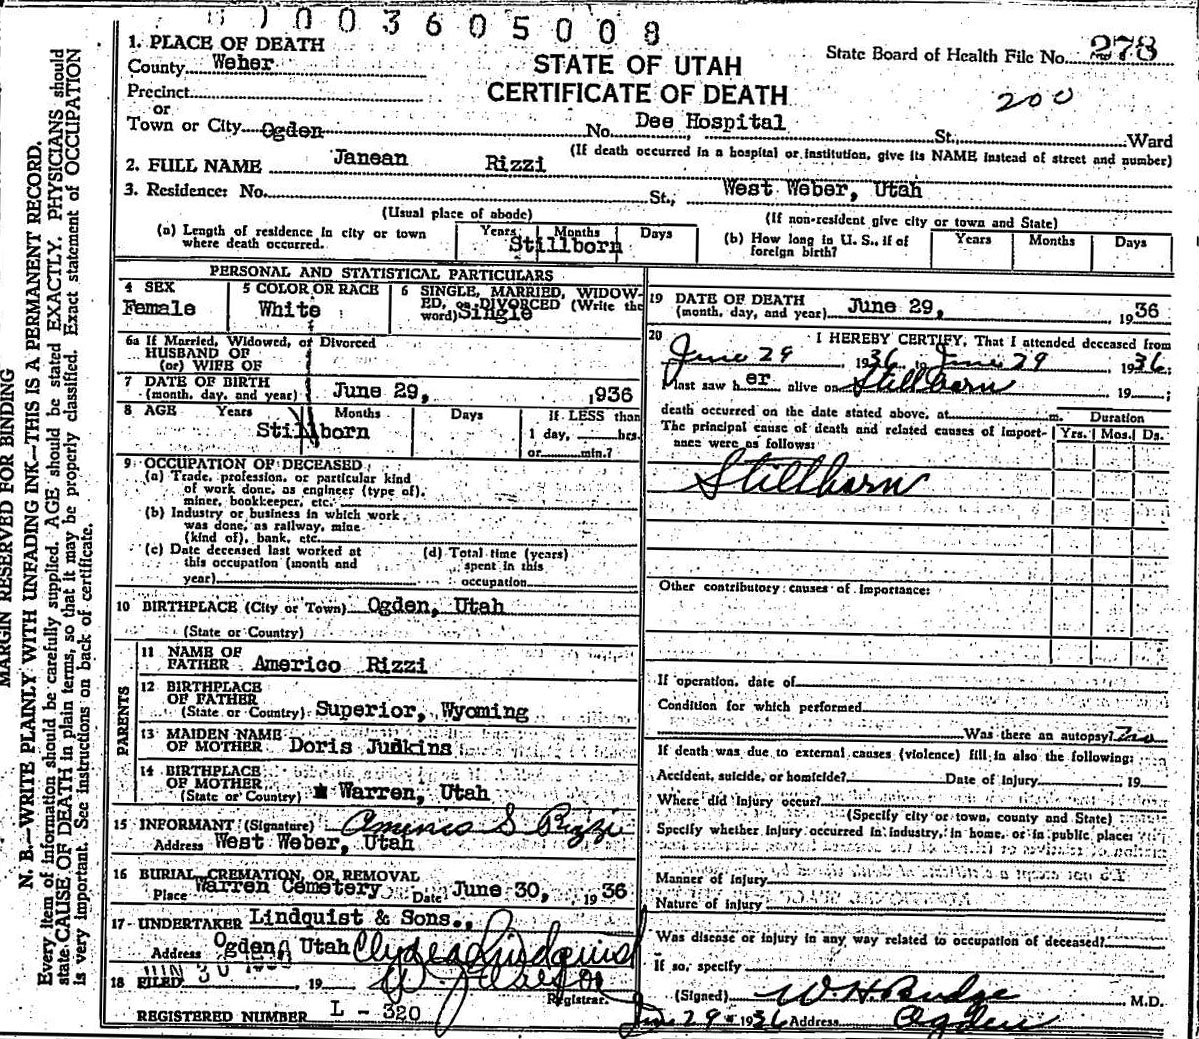 003605008
1. PLACE OF DEATH
STATE OF UTAH
CERTIFICATE OF DEATH
State Board of Health File No. 278
200
County Weber
Precinct
or
Town or City Ogden No. Dee Hospital St., Ward
(If death occurred in a hospital or institution, give its NAME instead of street and number)
2. FULL NAME Janean Rizzi
3. Residence: No. St., West Weber, Utah
(Usual place of abode) (If non-resident give city or town and State)
(a) Length of residence in city or town where death occurred. Years Months Days
Stillborn
(b) How long in U. S., if of foreign birth? Years Months Days
PERSONAL AND STATISTICAL PARTICULARS
4 SEX
Female
5 COLOR OR RACE
White
6 SINGLE, MARRIED, WIDOW-
ED, or DIVORCED (Write the
word) Single
6a If Married, Widowed, or Divorced
HUSBAND OF
(or) WIFE OF
7 DATE OF BIRTH
(month, day, and year) June 29, 1936
8 AGE Years Months Days If LESS than
Stillborn
1 day, hrs.
or min.?
9 OCCUPATION OF DECEASED
(a) Trade, profession, or particular kind
of work done, as engineer (type of),
miner, bookkeeper, etc.
(b) Industry or business in which work
was done, as railway, mine
(kind of), bank, etc.
(c) Date deceased last worked at
this occupation (month and
year)
(d) Total time (years)
spent in this
occupation
10 BIRTHPLACE (City or Town) Ogden, Utah
(State or Country)
PARENTS
11 NAME OF
FATHER Americo Rizzi
12 BIRTHPLACE
OF FATHER
(State or Country) Superior, Wyoming
13 MAIDEN NAME
OF MOTHER Doris Judkins
14 BIRTHPLACE
OF MOTHER
(State or Country) Warren, Utah
15 INFORMANT (Signature) Americo S Rizzi
Address West Weber, Utah
16 BURIAL, CREMATION, OR REMOVAL
Place Warren Cemetery Date June 30, 1936
17 UNDERTAKER Lindquist & Sons.,
Address Ogden Utah Clyde Lindquist
18 FILED JUN 30 19
Registrar.
REGISTERED NUMBER L - 320
19 DATE OF DEATH
(month, day, and year) June 29, 1936
20 I HEREBY CERTIFY, That I attended deceased from
June 29 1936 to June 29 1936;
I last saw her alive on Stillborn 19 ;
death occurred on the date stated above, at m.
Duration
The principal cause of death and related causes of import-
ance were as follows:
Yrs. Mos. Ds.
Stillborn
Other contributory causes of importance:
If operation, date of
Condition for which performed
Was there an autopsy? No
If death was due to external causes (violence) fill in also the following:
Accident, suicide, or homicide? Date of Injury 19
Where did Injury occur?
(Specify city or town, county and State)
Specify whether Injury occurred in Industry, in home, or in public place:
Manner of Injury
Nature of Injury
Was disease or injury in any way related to occupation of deceased?
If so, specify
(Signed) W. H. Budge M.D.
June 29 1936 Address Ogden
MARGIN RESERVED FOR BINDING
N. B.—WRITE PLAINLY WITH UNFADING INK—THIS IS A PERMANENT RECORD.
Every item of information should be carefully supplied. AGE should be stated EXACTLY. PHYSICIANS should
state CAUSE OF DEATH in plain terms, so that it may be properly classified. Exact statement of OCCUPATION
is very important. See instructions on back of certificate.